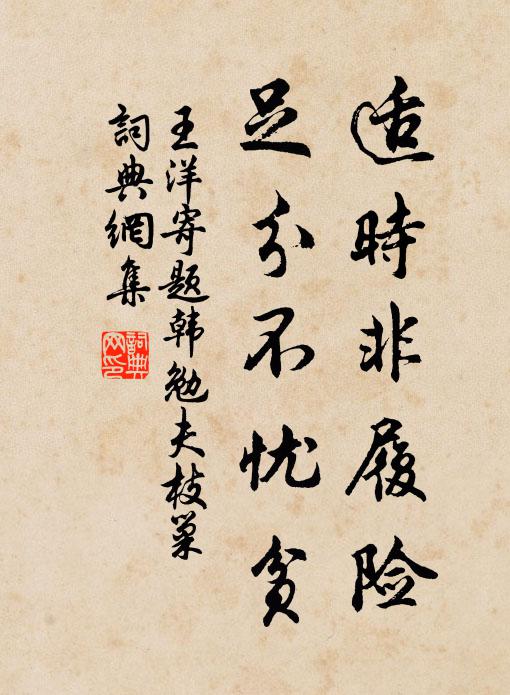 适時非履险
足分不忧貧
王洋寄题韩勉夫枝巢
詞典網集
詞典网印